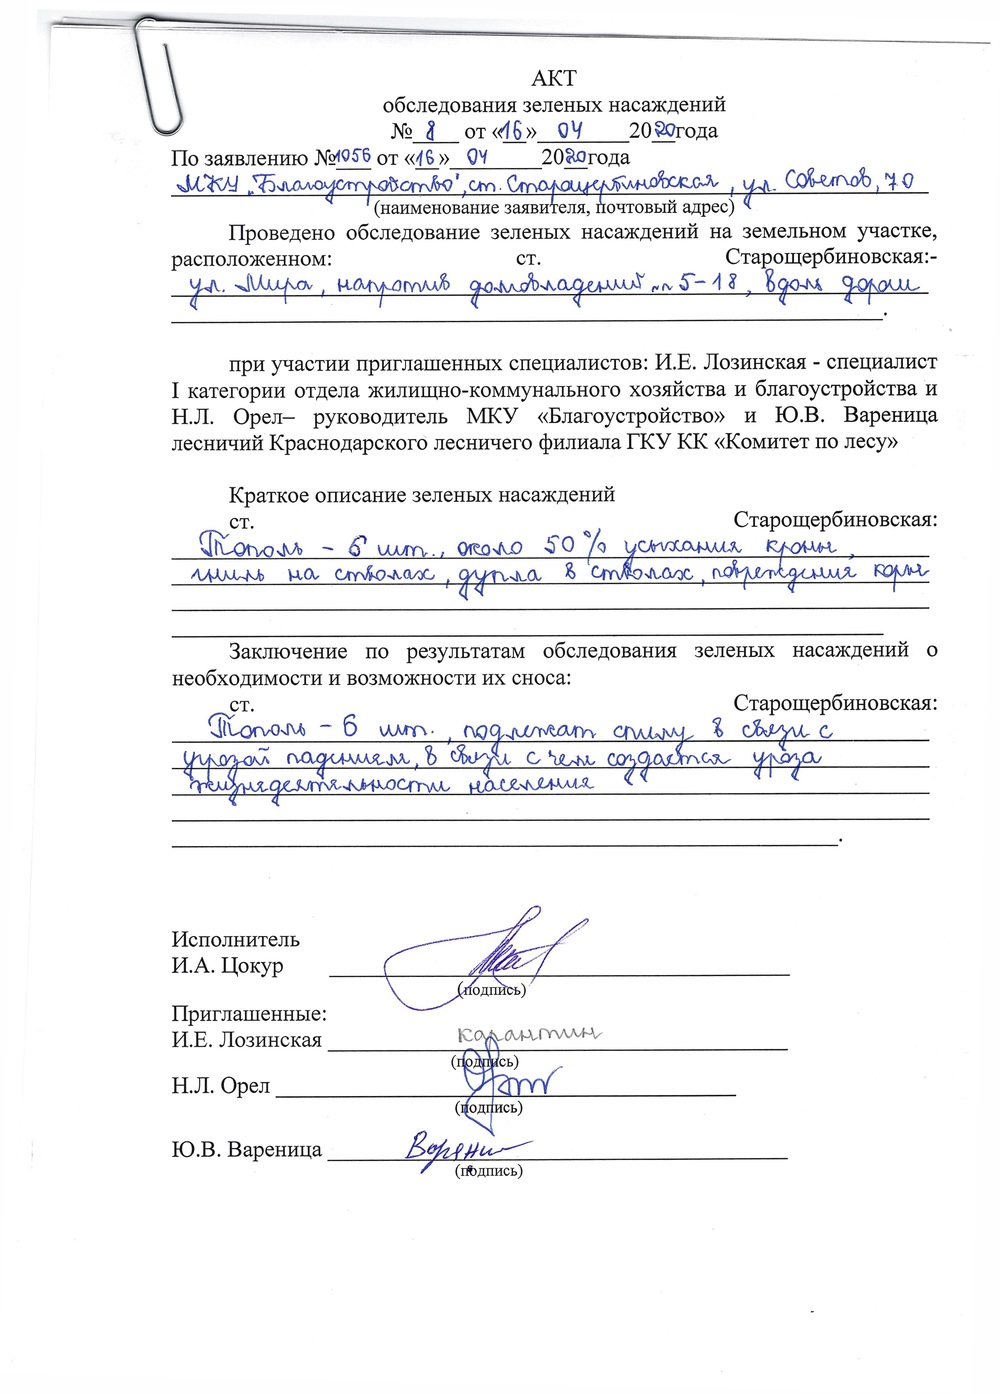 АКТ
обследования зеленых насаждений
№ 8 от «16» 04 2020 года
По заявлению №1056 от «16» 04 2020 года
МКУ "Благоустройство", ст. Старощербиновская, ул. Советов, 70
(наименование заявителя, почтовый адрес)
Проведено обследование зеленых насаждений на земельном участке,
расположенном: ст. Старощербиновская:-
ул. Мира, напротив домовладений 5-18, вдоль дороги
.
при участии приглашенных специалистов: И.Е. Лозинская - специалист
I категории отдела жилищно-коммунального хозяйства и благоустройства и
Н.Л. Орел– руководитель МКУ «Благоустройство» и Ю.В. Вареница
лесничий Краснодарского лесничего филиала ГКУ КК «Комитет по лесу»
Краткое описание зеленых насаждений
ст. Старощербиновская:
Тополь - 6 шт., около 50% усыхания кроны,
гниль на стволах, дупла в стволах, повреждения коры
Заключение по результатам обследования зеленых насаждений о
необходимости и возможности их сноса:
ст. Старощербиновская:
Тополь - 6 шт., подлежат спилу в связи с
угрозой падением, в связи с чем создается угроза
жизнедеятельности населения
.
Исполнитель
И.А. Цокур
(подпись)
Приглашенные:
И.Е. Лозинская карантин
(подпись)
Н.Л. Орел
(подпись)
Ю.В. Вареница
(подпись)